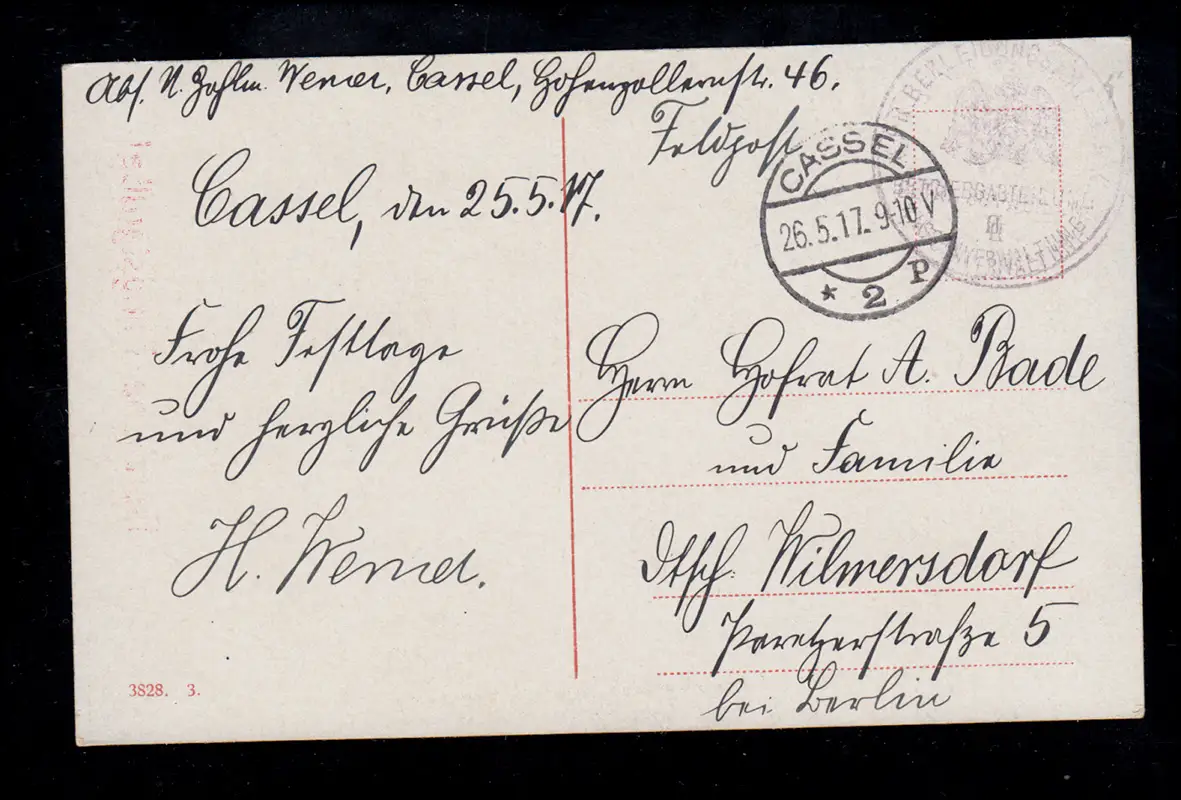 Abs. U. Zahlm. Werner, Cassel, Hohenzollernstr. 46.
Feldpost
Cassel, den 25.5.17.
CASSEL
26.5.17. 9-10 V
* 2 p
BEKLEIDUNGSAMT
II
Frohe Festtage
und herzliche Grüße
H. Werner.
Herrn Hofrat A. Bade
und Familie
Dtsch. Wilmersdorf
Paretzerstraße 5
bei Berlin
3828. 3.